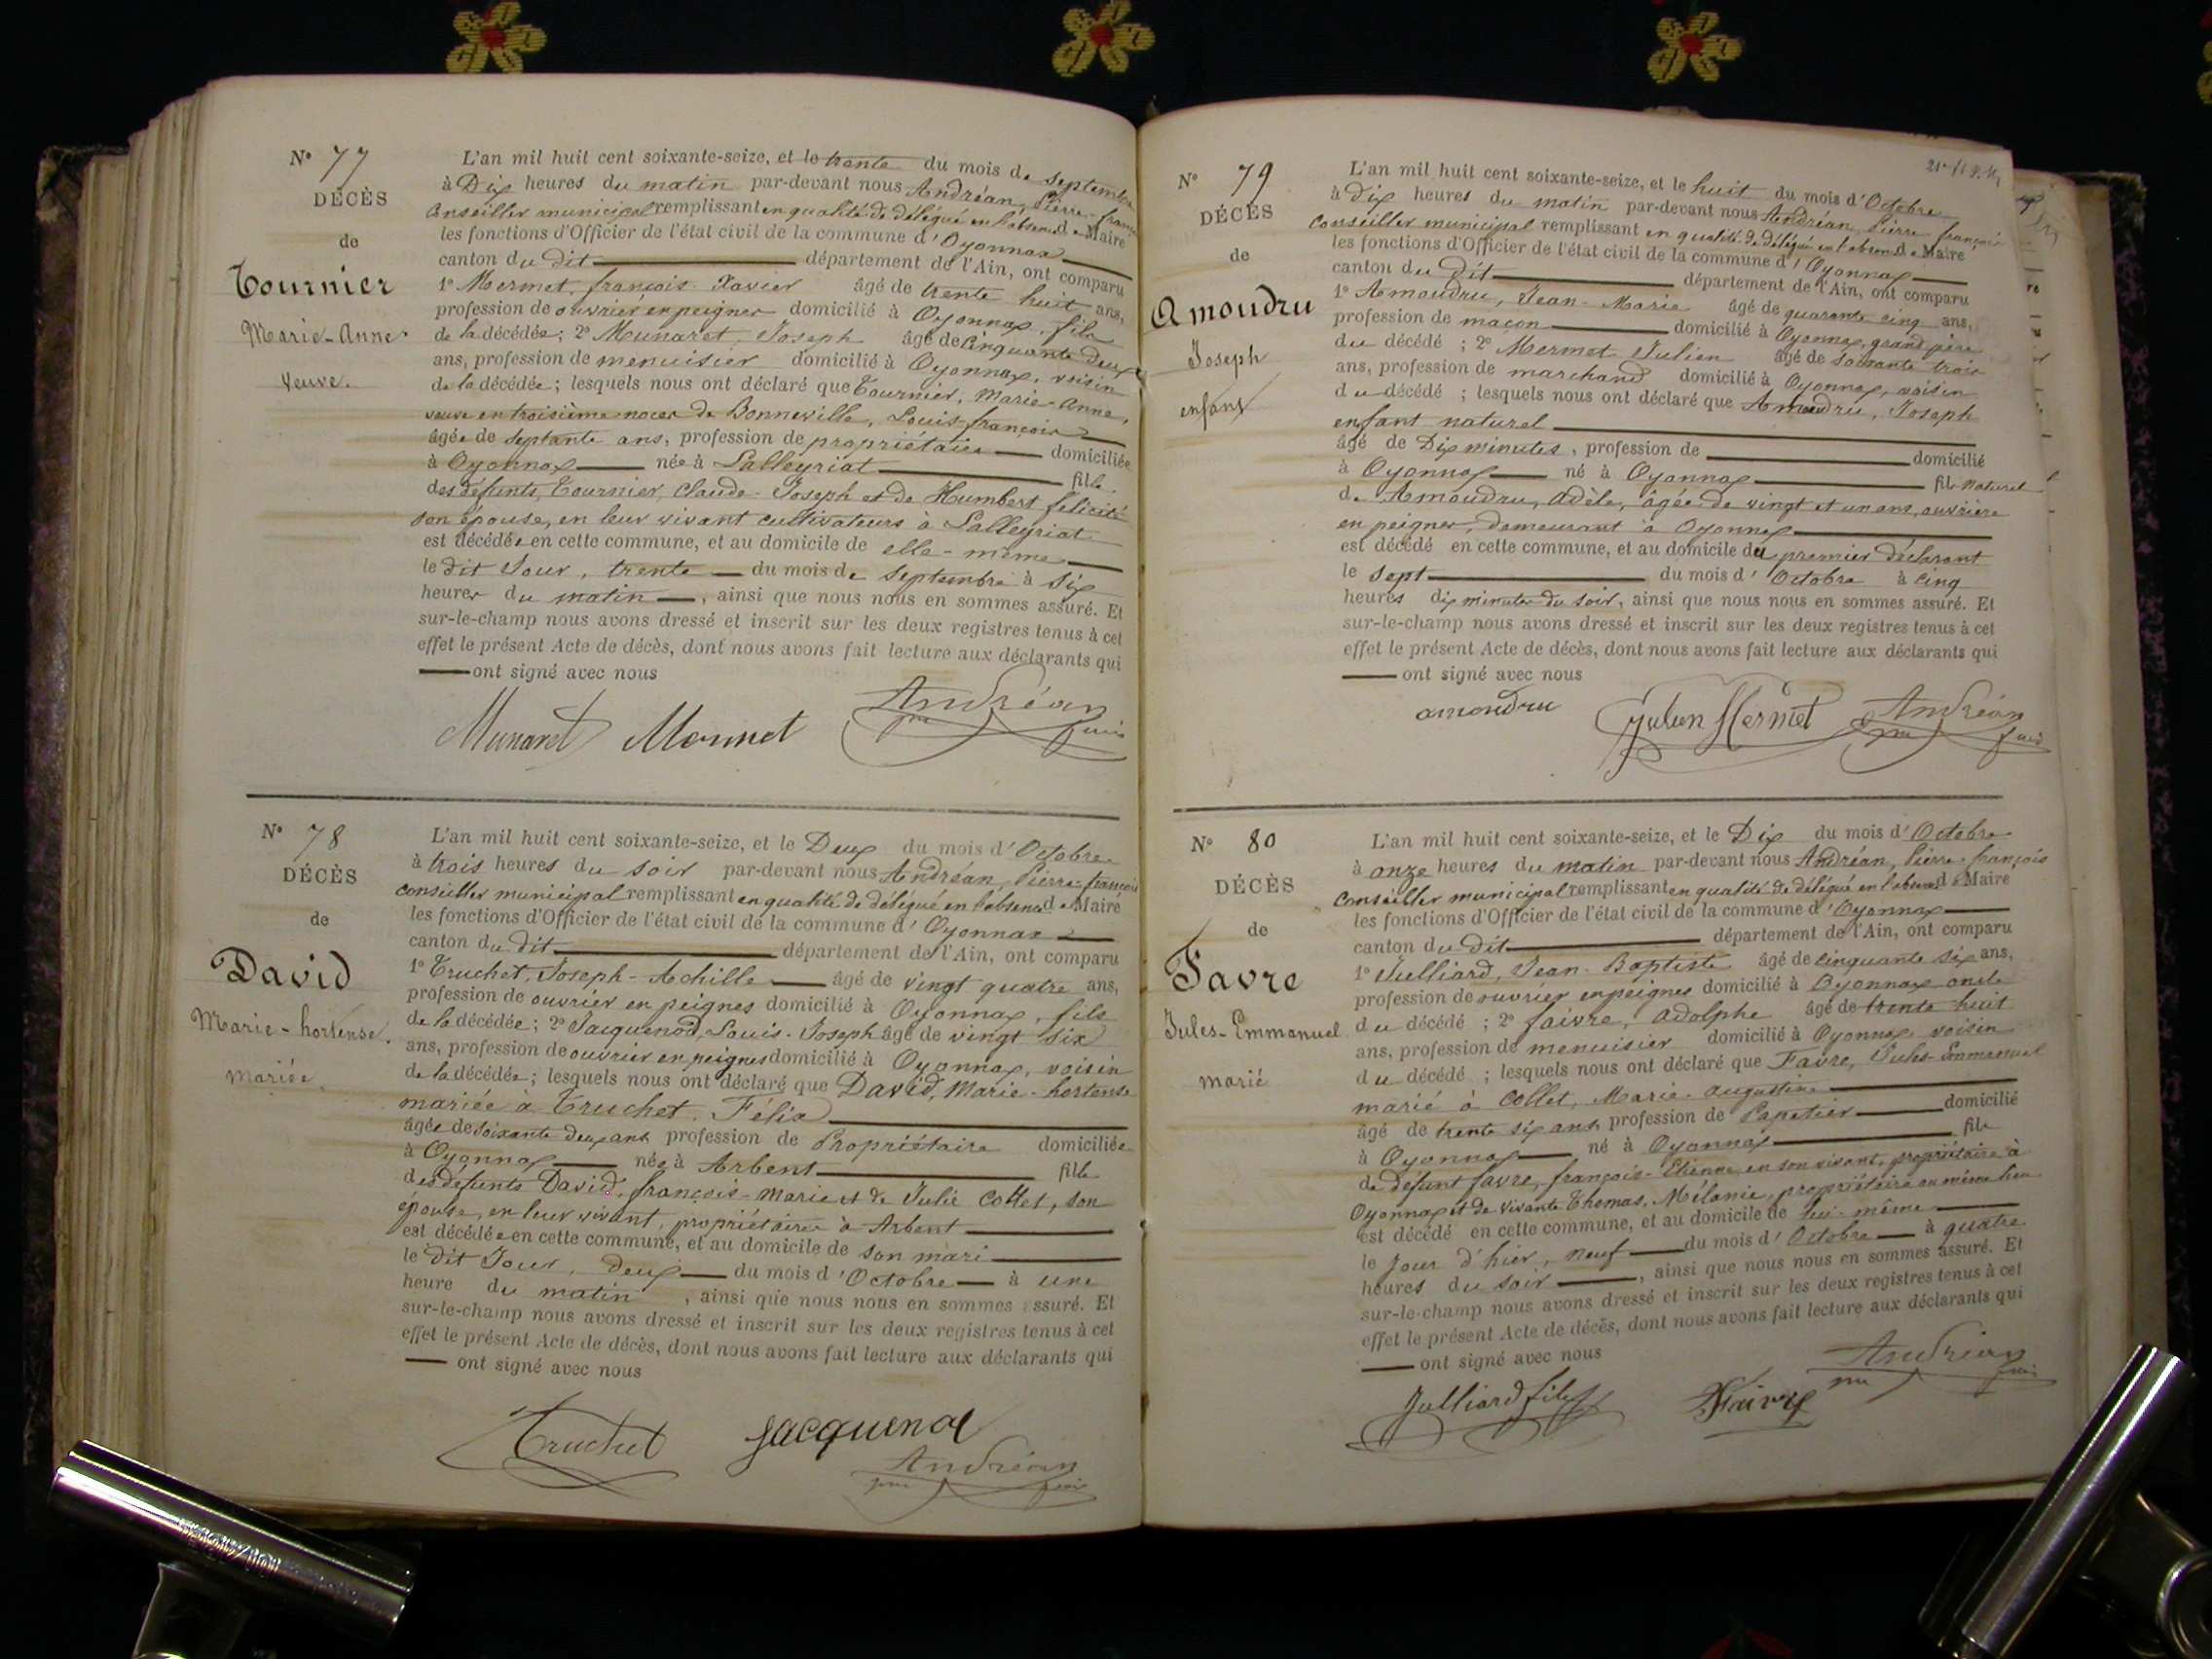 N° 77
DÉCÈS
de
Tournier
Marie-Anne
Veuve.
L'an mil huit cent soixante-seize, et le trente du mois de septembre
à Dix heures du matin par-devant nous Andréan, Pierre-françois
Conseiller municipal remplissant en qualité de délégué en l'absence de Maire
les fonctions d'Officier de l'état civil de la commune d'Oyonnax
canton du dit département de l'Ain, ont comparu
1° Mermet, françois-Xavier âgé de trente huit ans,
profession de ouvrier en peignes domicilié à Oyonnax, fils
de la décédée; 2° Munaret, Joseph âgé de Cinquante deux
ans, profession de menuisier domicilié à Oyonnax, voisin
de la décédée; lesquels nous ont déclaré que Tournier, Marie-Anne,
veuve en troisième noces de Bonneville, Louis-françois
âgée de septante ans, profession de propriétaire domiciliée
à Oyonnax née à Lalleyriat fille
des défunts, Tournier, Claude-Joseph et de Humbert felicité
son épouse, en leur vivant cultivateurs à Lalleyriat
est décédée en cette commune, et au domicile de elle-même
le dit Jour, trente du mois de septembre à six
heures du matin, ainsi que nous nous en sommes assuré. Et
sur-le-champ nous avons dressé et inscrit sur les deux registres tenus à cet
effet le présent Acte de décès, dont nous avons fait lecture aux déclarants qui
ont signé avec nous
Munaret Mermet Andréan
N° 78
DÉCÈS
de
David
Marie-hortense.
Mariée.
L'an mil huit cent soixante-seize, et le Deux du mois d'Octobre
à trois heures du soir par-devant nous Andréan, Pierre-françois
conseiller municipal remplissant en qualité de délégué en l'absence de Maire
les fonctions d'Officier de l'état civil de la commune d'Oyonnax
canton du dit département de l'Ain, ont comparu
1° Truchet, Joseph-Achille âgé de vingt quatre ans,
profession de ouvrier en peignes domicilié à Oyonnax, fils
de la décédée; 2° Jacquenod, Louis-Joseph âgé de vingt six
ans, profession de ouvrier en peignes domicilié à Oyonnax, voisin
de la décédée; lesquels nous ont déclaré que David, Marie-hortense
mariée à Truchet, Félix
âgée de soixante deux ans profession de Propriétaire domiciliée
à Oyonnax née à Arbent fille
des défunts David, françois-Marie et de Julie Collet, son
épouse, en leur vivant, propriétaires à Arbent
est décédée en cette commune, et au domicile de son mari
le dit Jour, deux du mois d'Octobre à une
heure du matin, ainsi que nous nous en sommes assuré. Et
sur-le-champ nous avons dressé et inscrit sur les deux registres tenus à cet
effet le présent Acte de décès, dont nous avons fait lecture aux déclarants qui
ont signé avec nous
Truchet Jacquenod
Andréan
N° 79
DÉCÈS
de
Amoudru
Joseph
enfant
L'an mil huit cent soixante-seize, et le huit du mois d'Octobre
à dix heures du matin par-devant nous Andréan, Pierre françois
Conseiller municipal remplissant en qualité de délégué en l'absence de Maire
les fonctions d'Officier de l'état civil de la commune d'Oyonnax
canton du dit département de l'Ain, ont comparu
1° Amoudru, Jean-Marie âgé de quarante cinq ans,
profession de maçon domicilié à Oyonnax, grand père
du décédé; 2° Mermet Julien âgé de soixante trois
ans, profession de marchand domicilié à Oyonnax, voisin
du décédé; lesquels nous ont déclaré que Amoudru, Joseph
enfant naturel
âgé de Dix minutes, profession de domicilié
à Oyonnax né à Oyonnax fils naturel
de Amoudru, Adèle, âgée de vingt et un ans, ouvrière
en peignes, demeurant à Oyonnax
est décédé en cette commune, et au domicile du premier déclarant
le sept du mois d'Octobre à cinq
heures dix minutes du soir, ainsi que nous nous en sommes assuré. Et
sur-le-champ nous avons dressé et inscrit sur les deux registres tenus à cet
effet le présent Acte de décès, dont nous avons fait lecture aux déclarants qui
ont signé avec nous
amoudru Julien Mermet Andréan
N° 80
DÉCÈS
de
Favre
Jules-Emmanuel
marié
L'an mil huit cent soixante-seize, et le Dix du mois d'Octobre
à onze heures du matin par-devant nous Andréan, Pierre-françois
Conseiller municipal remplissant en qualité de délégué en l'absence de Maire
les fonctions d'Officier de l'état civil de la commune d'Oyonnax
canton du dit département de l'Ain, ont comparu
1° Julliard, Jean-Baptiste âgé de cinquante six ans,
profession de ouvrier en peignes domicilié à Oyonnax oncle
du décédé; 2° faivre, Adolphe âgé de trente huit
ans, profession de menuisier domicilié à Oyonnax voisin
du décédé; lesquels nous ont déclaré que Favre, Jules-Emmanuel
marié à Collet, Marie-augustine
âgé de trente six ans profession de Papetier domicilié
à Oyonnax né à Oyonnax fils
de défunt favre, françois-Etienne, en son vivant, propriétaire à
Oyonnax et de vivante Thomas, Mélanie, propriétaire au même lieu
est décédé en cette commune, et au domicile de lui-même
le Jour d'hier, neuf du mois d'Octobre à quatre
heures du soir, ainsi que nous nous en sommes assuré. Et
sur-le-champ nous avons dressé et inscrit sur les deux registres tenus à cet
effet le présent Acte de décès, dont nous avons fait lecture aux déclarants qui
ont signé avec nous
Julliard fils Faivre Andréan